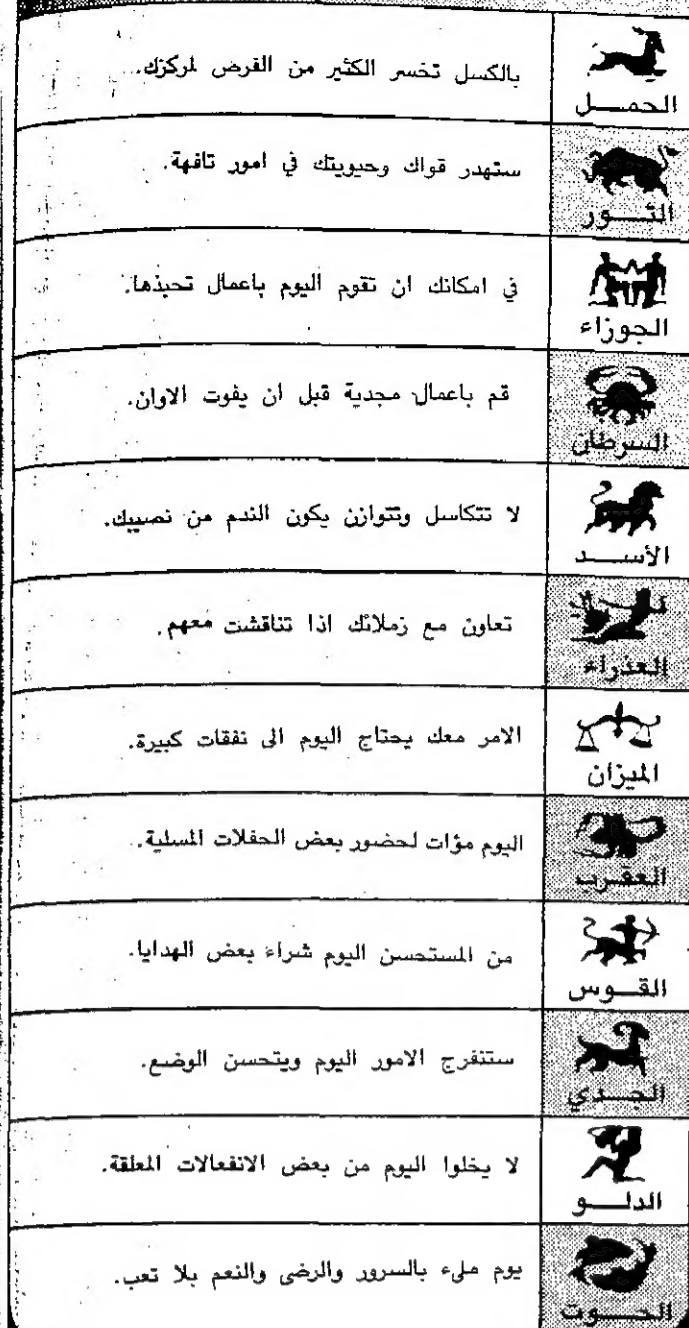 بالكسل تخسر الكثير من الفرص لمركزك.
الحمـــل
ستهدر قواك وحيويتك في امور تافهة.
الثـــور
في امكانك ان تقوم اليوم باعمال تحبذها.
الجوزاء
قم باعمال مجدية قبل ان يفوت الاوان.
السرطان
لا تتكاسل وتتوازن يكون الندم من نصيبك.
الأســـد
تعاون مع زملائك اذا تناقشت معهم.
العذراء
الامر معك يحتاج اليوم الى نفقات كبيرة.
الميزان
اليوم مؤات لحضور بعض الحفلات المسلية.
العقـرب
من المستحسن اليوم شراء بعض الهدايا.
القــوس
ستنفرج الامور اليوم ويتحسن الوضع.
الجـــدي
لا يخلوا اليوم من بعض الانفعالات المعلقة.
الدلـــو
يوم مليء بالسرور والرضى والنعم بلا تعب.
الحـــوت